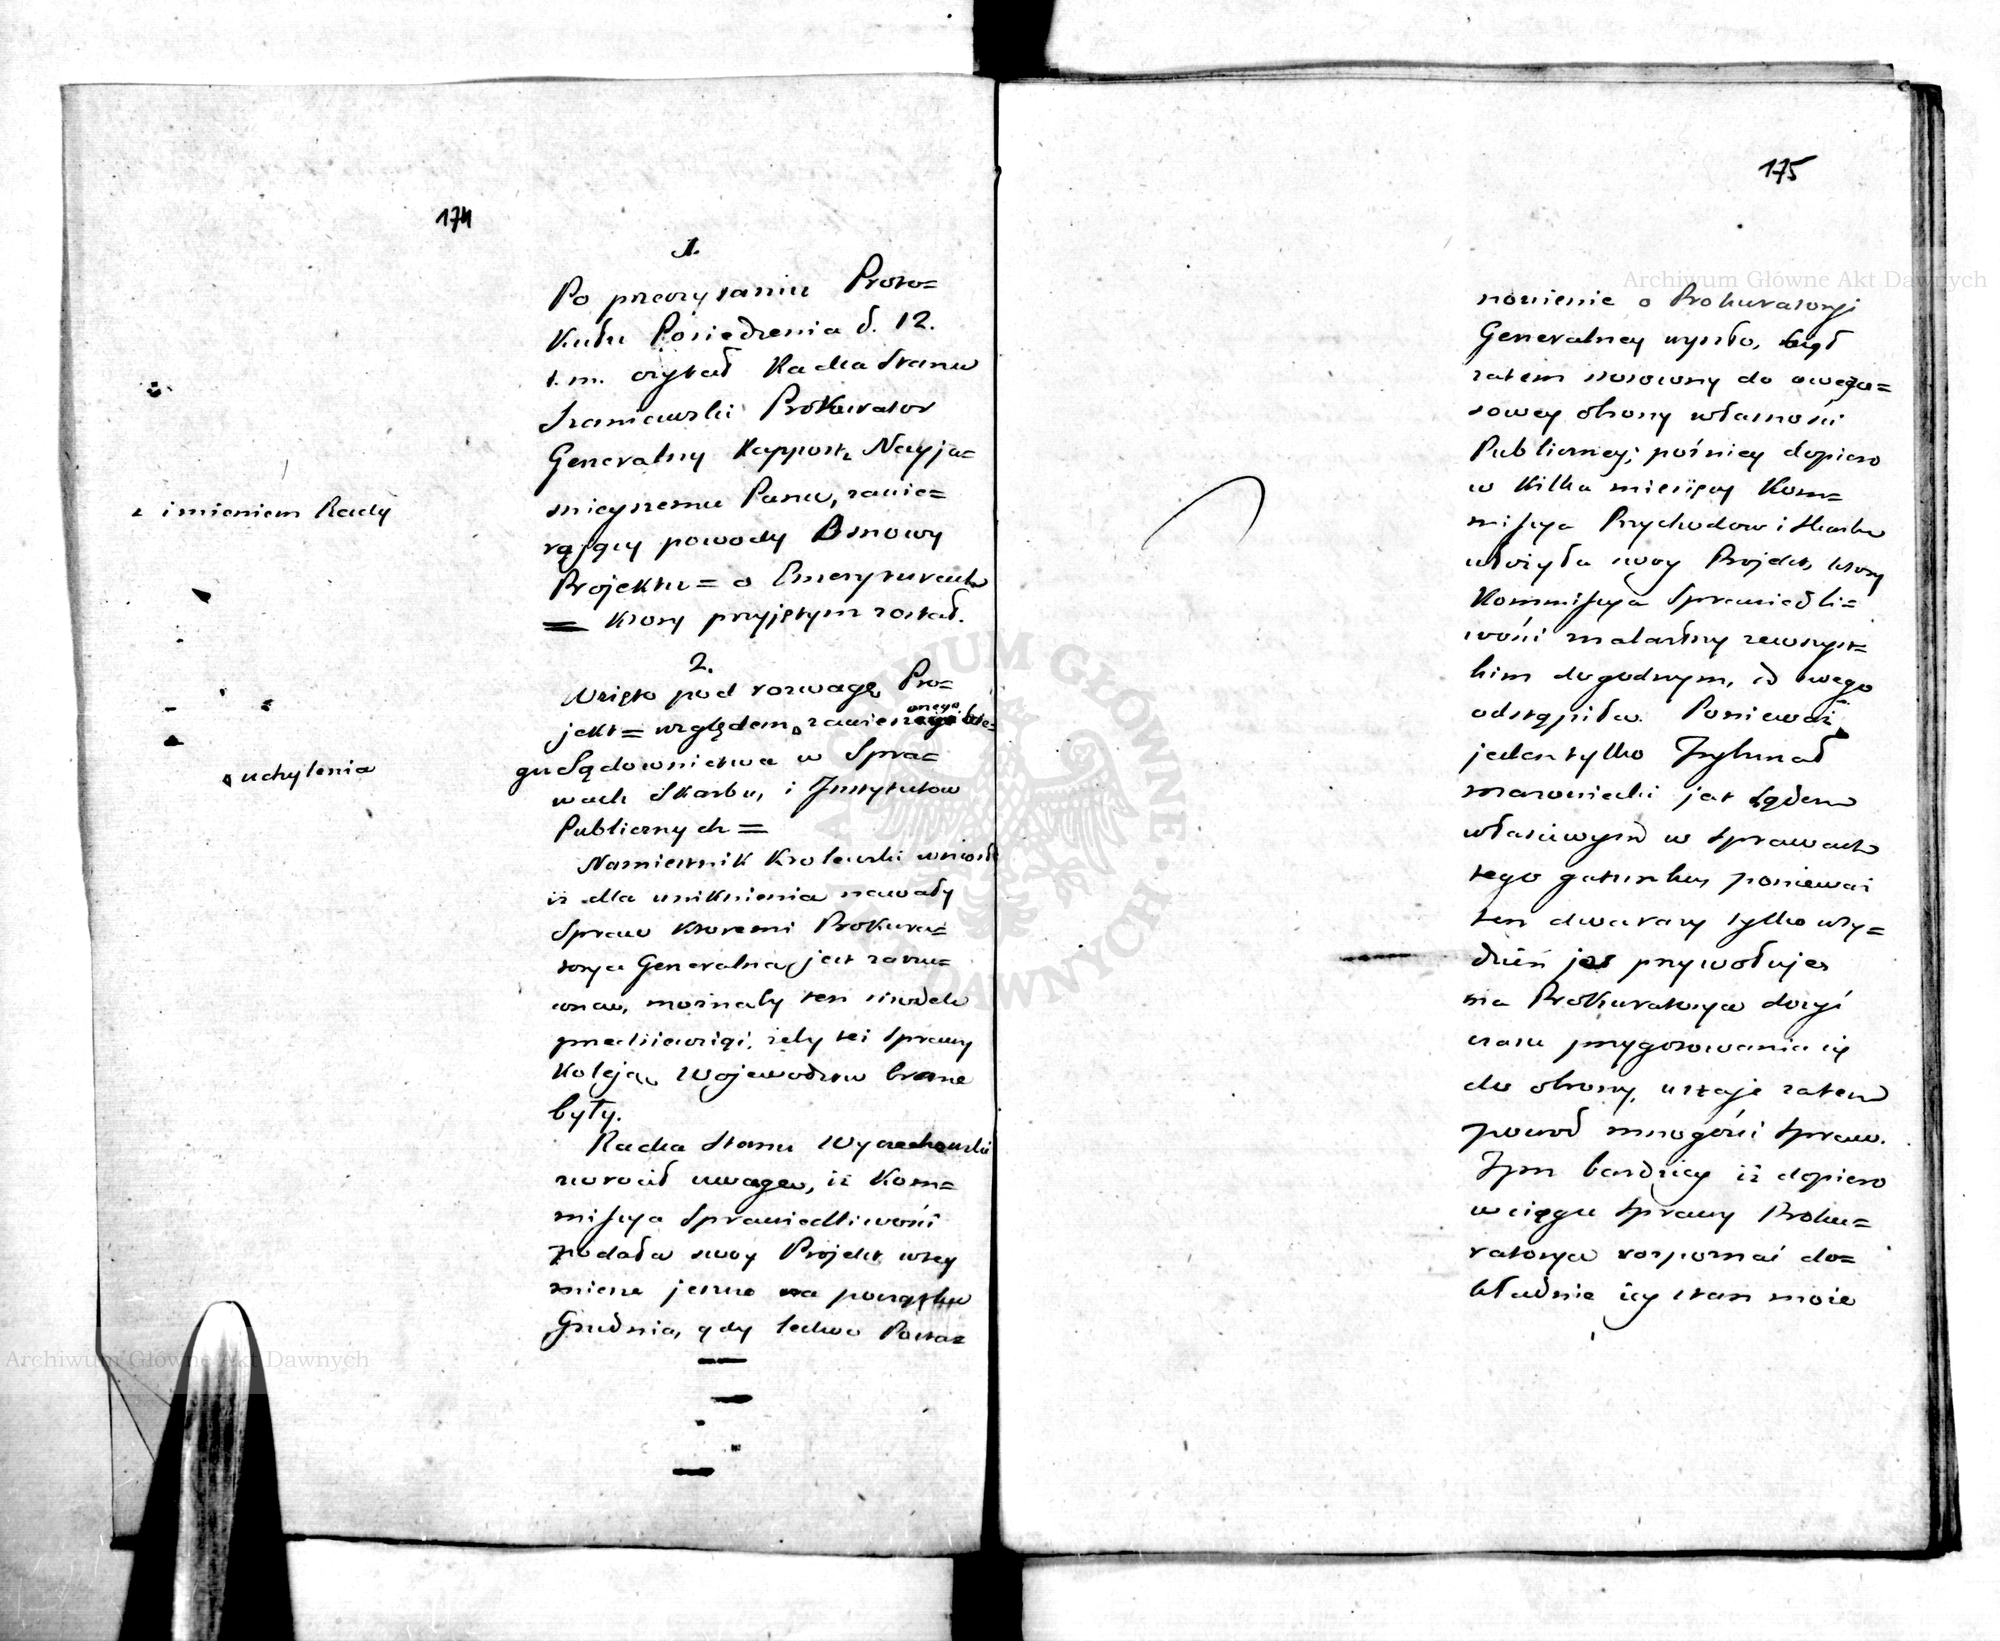 174
1.
Po przeczytaniu Proto=
kułu Posiedzenia d. 12.
t. m. czytał Radca Stanu
Szaniawski Prokurator
Generalny Rapport Nayja=
śnieyszemu Panu, zawie=
z imieniem Rady
rający powody Osnowy
Projektu = o Emeryturach
= ktory przyjętym został.
2.
Wzięto pod rozwagę Pro=
jekt = względem zawieszonego bie=
uchylenia
gu Sądownictwa w Spra=
wach Skarbu, i Instytutow
Publicznych =
Namiestnik Krolewski wniosł
iż dla uniknienia nawały
Spraw ktoremi Prokura=
torya Generalna jest zarzu=
cona, możnaby ten srodek
przedsiewziąć, żeby też sprawy
Koleją Wojewodztw brane
były.
Radca Stanu Wyczechowski
zwrocił uwagę, iż Kom=
missya Sprawiedliwości
podała swoy Projekt w tey
mierze jeszcze na początku
Grudnia, gdy ledwo Posta=
175
nowienie o Prokuratoryi
Generalney wyszło, był
zatem stosowny do owcza=
sowey obrony własności
Publiczney; poźniey dopiero
w kilka miesięcy Kom=
missya Przychodow i Skarbu
ułożyła nowy Projekt, ktory
Kommissya Sprawiedli=
wości znalazłszy ze wszyst=
kim dogodnym, od swego
odstąpiła. Ponieważ
jeden tylko Trybunał
Mazowiecki jest Sądem
właściwym w sprawach
tego gatunku, ponieważ
ten dwa razy tylko w ty=
dzień je przywołuje
ma Prokuratorya dosyć
czasu przygotowania się
do obrony, ustaje zatem
powod mnogości spraw.
Tym bardziey iż dopiero
w ciągu sprawy Proku=
ratorya rozpoznać do=
kładnie iey stan może
Archiwum Główne Akt Dawnych
Archiwum Główne Akt Dawnych
ARCHIWUM GŁÓWNE AKT DAWNYCH